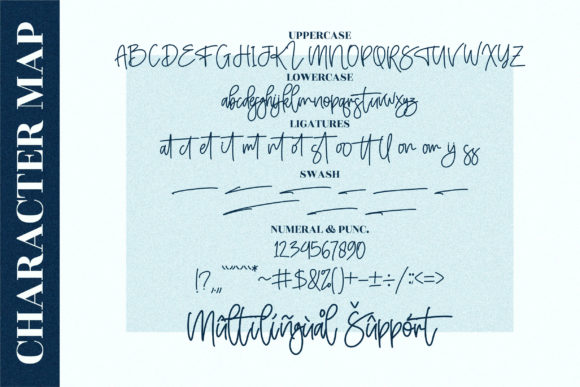 CHARACTER MAP
UPPERCASE
ABCDEFGHIJKLMNOPQRSTUVWXYZ
LOWERCASE
abcdefghijklmnopqrstuvwxyz
LIGATURES
at ct et it mt nt ot st oo tt ll on om y ss
SWASH
NUMERAL & PUNC.
1234567890
~#$&%()+-±÷/:<=>
Mûltílíñgùål Šûppórt